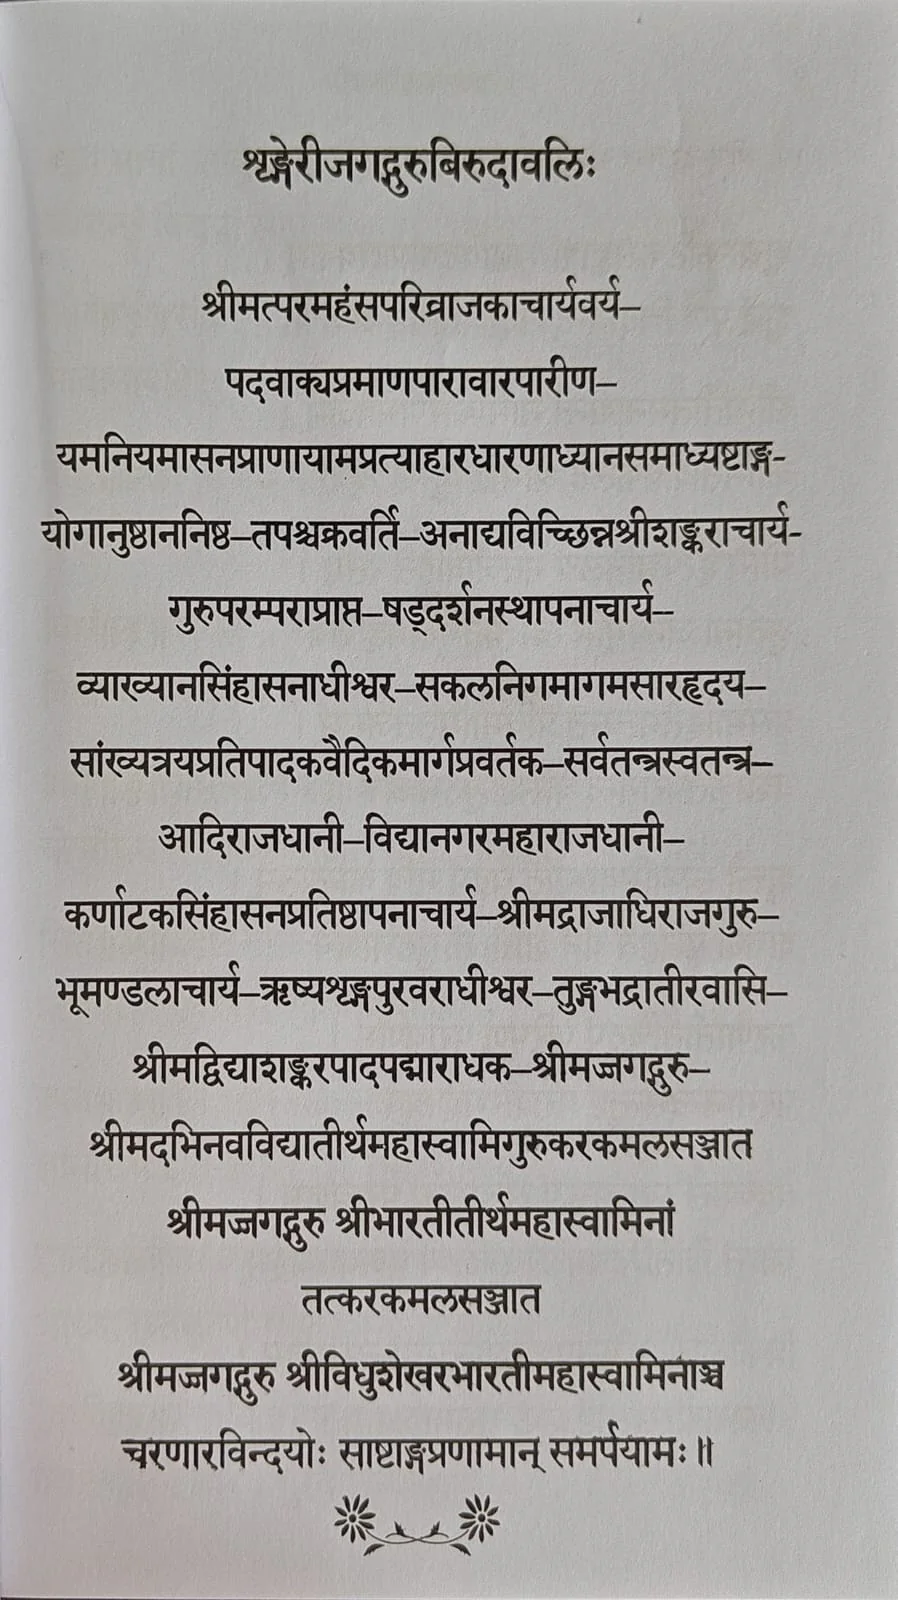 शृङ्गेरीजगद्गुरुबिरुदावलिः
श्रीमत्परमहंसपरिव्राजकाचार्यवर्य–
पदवाक्यप्रमाणपारावारपारीण–
यमनियमासनप्राणायामप्रत्याहारधारणाध्यानसमाध्यष्टाङ्ग-
योगानुष्ठाननिष्ठ–तपश्चक्रवर्ति–अनाद्यविच्छिन्नश्रीशङ्कराचार्य-
गुरुपरम्पराप्राप्त–षड्दर्शनस्थापनाचार्य–
व्याख्यानसिंहासनाधीश्वर–सकलनिगमागमसारहृदय–
सांख्यत्रयप्रतिपादकवैदिकमार्गप्रवर्तक–सर्वतन्त्रस्वतन्त्र–
आदिराजधानी–विद्यानगरमहाराजधानी–
कर्णाटकसिंहासनप्रतिष्ठापनाचार्य–श्रीमद्राजाधिराजगुरु–
भूमण्डलाचार्य–ऋष्यशृङ्गपुरवराधीश्वर–तुङ्गभद्रातीरवासि–
श्रीमद्विद्याशङ्करपादपद्माराधक–श्रीमज्जगद्गुरु–
श्रीमदभिनवविद्यातीर्थमहास्वामिगुरुकरकमलसञ्जात
श्रीमज्जगद्गुरु श्रीभारतीतीर्थमहास्वामिनां
तत्करकमलसञ्जात
श्रीमज्जगद्गुरु श्रीविधुशेखरभारतीमहास्वामिनाञ्च
चरणारविन्दयोः साष्टाङ्गप्रणामान् समर्पयामः॥